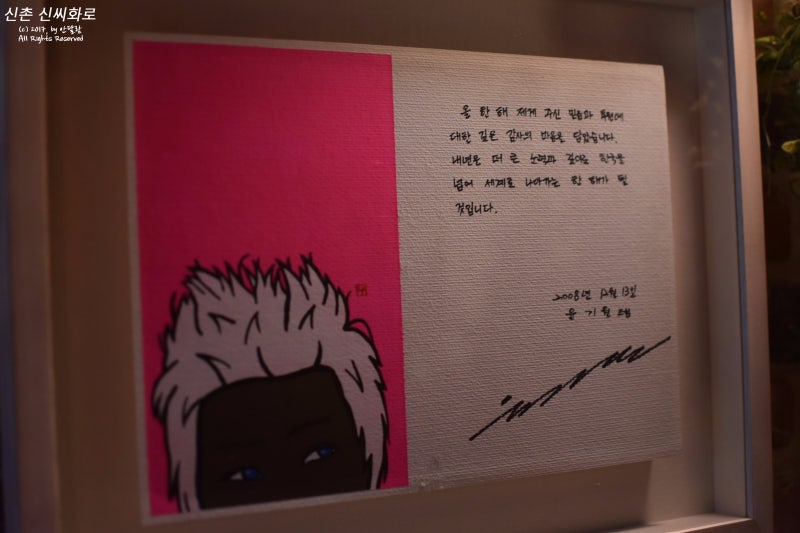 신촌 신씨화로
(c) 2017, by 안졀칼
All Rights Reserved
올 한 해 제게 주신 믿음과 후원에
대한 깊은 감사의 마음을 담았습니다.
내년은 더 큰 노력과 깊이로 한국을
넘어 세계로 나아가는 한 해가 될
것입니다.
2008년 12월 13일
윤 기 원 드림